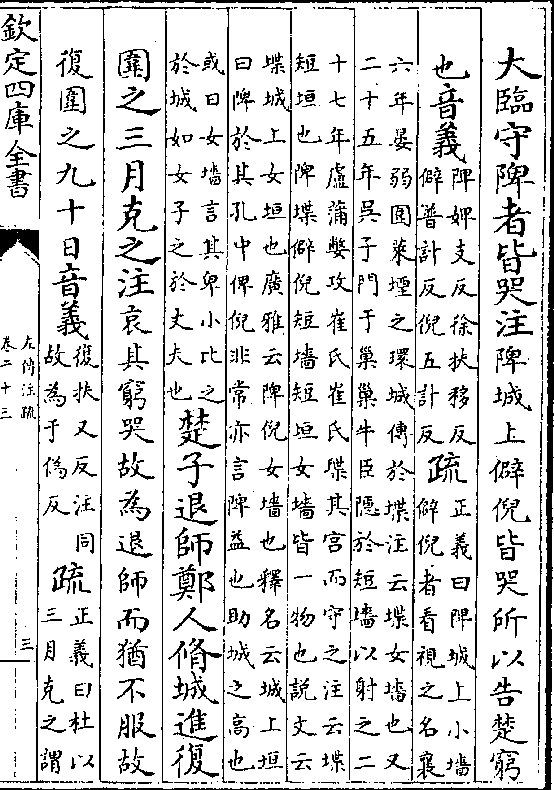 大臨守陴者皆哭注陴城上僻倪皆哭所以告楚窮
也音義
陴婢支反徐扶移反
僻普計反倪五計反
疏
正義曰陴城上小墻
僻倪者看視之名襄
六年晏弱圍萊堙之環城傳於堞注云堞女墻也又
二十五年吳子門于巢巢牛臣隱於短墻以射之二
十七年盧蒲嫳攻崔氏崔氏堞其宮而守之注云堞
短垣也陴堞僻倪短墻短垣女墻皆一物也說文云
堞城上女垣也廣雅云陴倪女墻也釋名云城上垣
曰陴於其孔中俾倪非常亦言陴益也助城之高也
或曰女墻言其卑小比之
於城如女子之於丈夫也
楚子退師鄭人脩城進復
圍之三月克之注哀其窮哭故為退師而猶不服故
復圍之九十日音義
復扶又反注同
故為于偽反
疏
正義曰杜以
三月克之謂
欽定四庫全書
左傳注疏
卷二十三
三